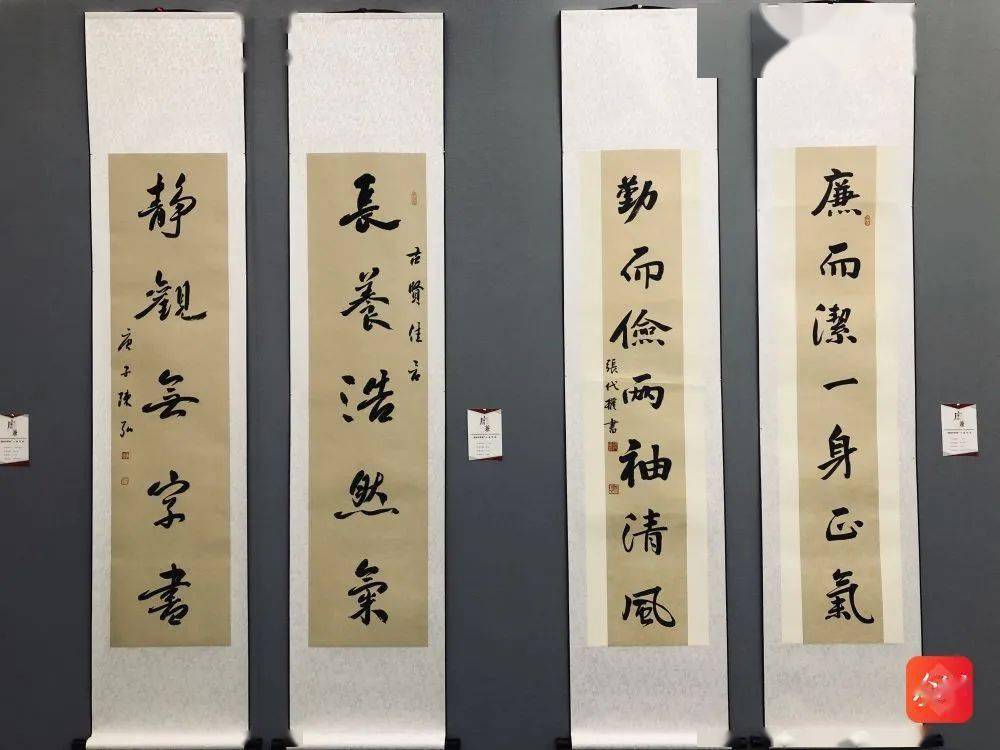 廉而潔一身正氣
勤而儉兩袖清風
張代撰書
長養浩然氣
古賢佳言
靜觀無字書
庚子陳弘